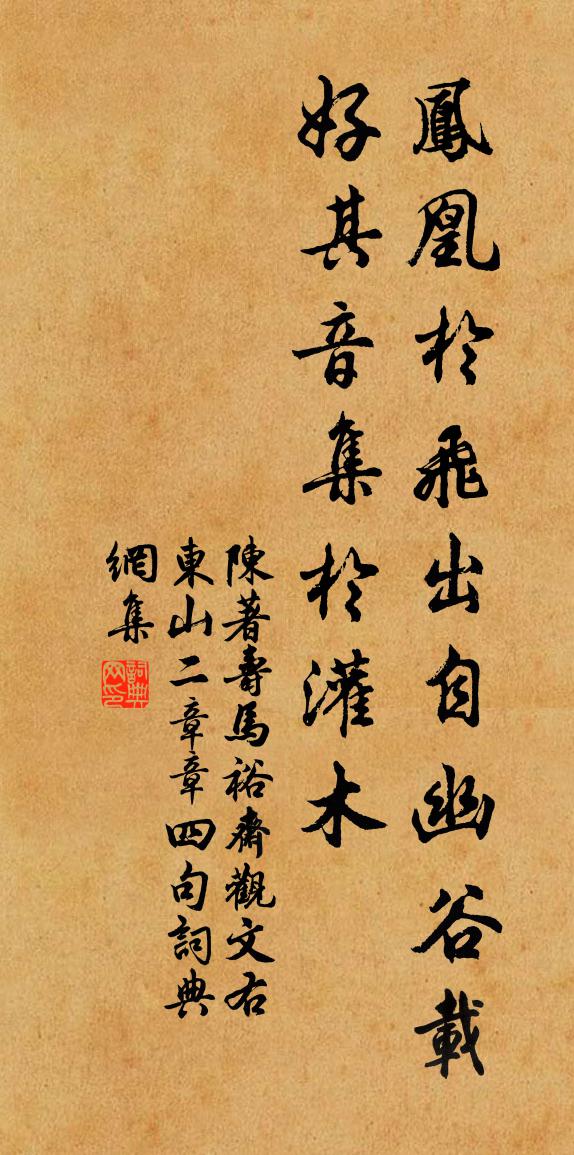 鳳凰於飛出自幽谷載
好其音集於灌木
陳著壽馬裕齋觀文右
東山二章章四句詞典
網集
詞典
网印